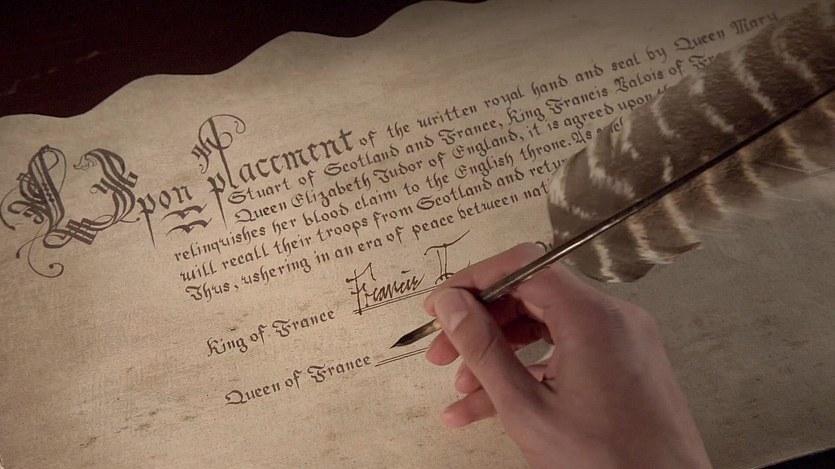 Upon placement of the written royal hand and seal by Queen Mary
Stuart of Scotland and France, King Francis Valois of
Queen Elizabeth Tudor of England, it is agreed upon
relinquishes her blood claim to the English throne. As
will recall their troops from Scotland and
Thus, ushering in an era of peace between
Francis II
King of France
Queen of France